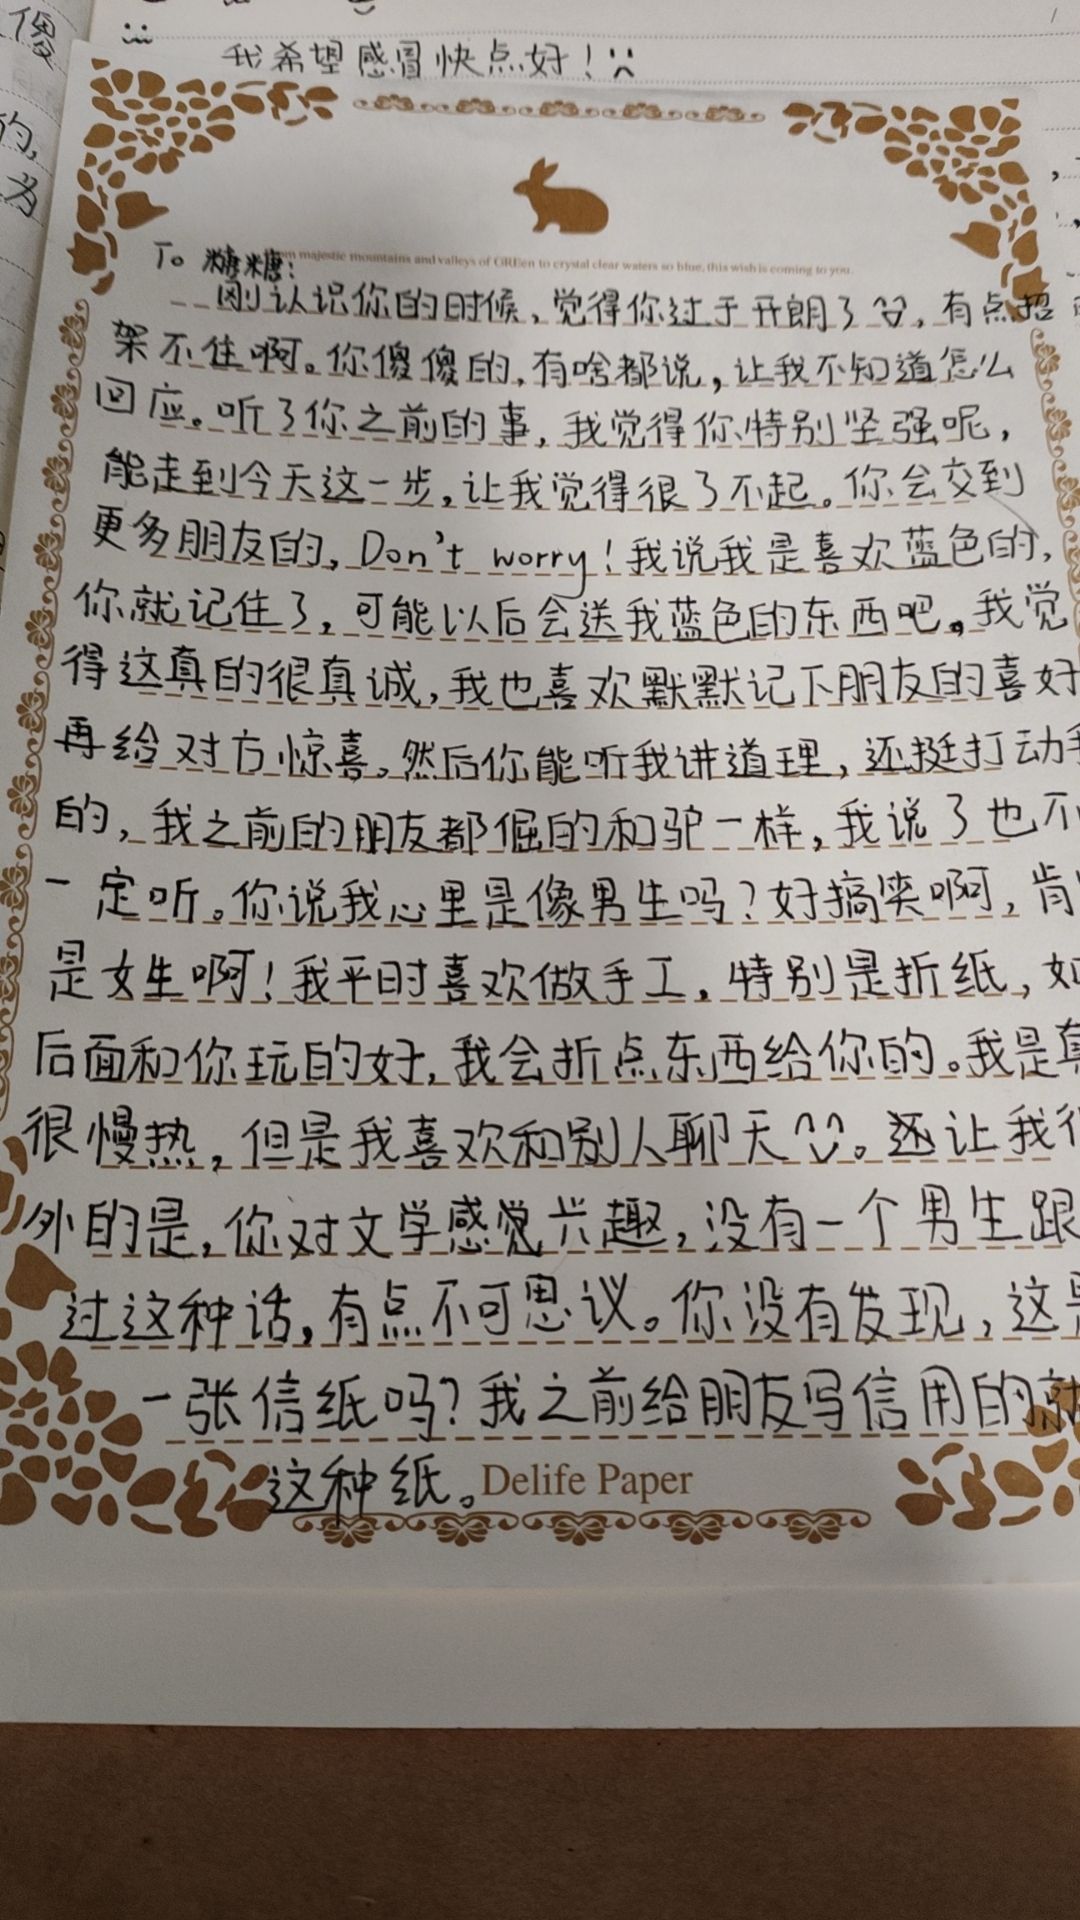 傻
我希望感冒快点好！
的,
为
majestic mountains and valleys of GREen to crystal clear waters so blue, this wish is coming to you.
To 糖糖:
刚认识你的时候，觉得你过于开朗了，有点招
架不住啊。你傻傻的，有啥都说，让我不知道怎么
回应。听了你之前的事，我觉得你特别坚强呢，
能走到今天这一步，让我觉得很了不起。你会交到
更多朋友的，Don't worry！我说我是喜欢蓝色的，
你就记住了，可能以后会送我蓝色的东西吧。我觉
得这真的很真诚，我也喜欢默默记下朋友的喜好
再给对方惊喜。然后你能听我讲道理，还挺打动
的，我之前的朋友都倔的和驴一样，我说了也不
一定听。你说我心里是像男生吗？好搞笑啊，肯
是女生啊！我平时喜欢做手工，特别是折纸，如
后面和你玩的好，我会折点东西给你的。我是真
很慢热，但是我喜欢和别人聊天。还让我很
外的是，你对文学感觉兴趣，没有一个男生跟
过这种话，有点不可思议。你没有发现，这是
一张信纸吗？我之前给朋友写信用的就
这种纸。
Delife Paper